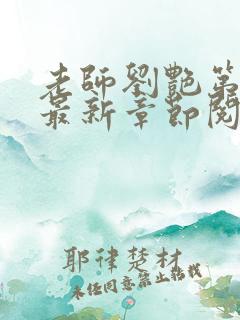 老師劉艷第
最新章節閱
耶律楚材
未經同意禁止轉載